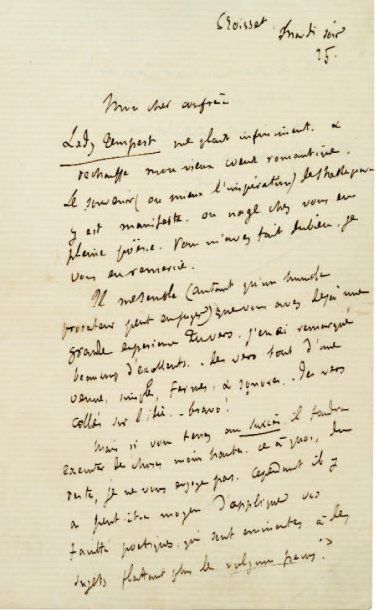 Croisset. mardi soir
25.
Mon cher confrère
Lady Tempest me plaît infiniment. &
rechauffe mon vieux cœur romantique.
Le souvenir (ou mieux l'inspiration) de Shakespeare
y est manifeste. on nage chez vous en
pleine poësie. Vous m'avez fait du bien. je
vous en remercie.
Il me semble (autant qu'un humble
prosateur peut en juger) que vous avez déjà une
grande experience du vers. j'en ai remarqué
beaucoup d'excellents. - des vers tout d'une
venue, simples, fermes, & sonores. - des vers
collés sur l'idée. - bravo!
Mais si vous tenez au succès, il faudra
executer des choses moins hautes. ce à quoi, du
reste, je ne vous engage pas. Cependant il y
a peut-être moyen d'appliquer vos
facultés poëtiques, qui sont eminentes à des
sujets flattant plus le vulgum pecus?